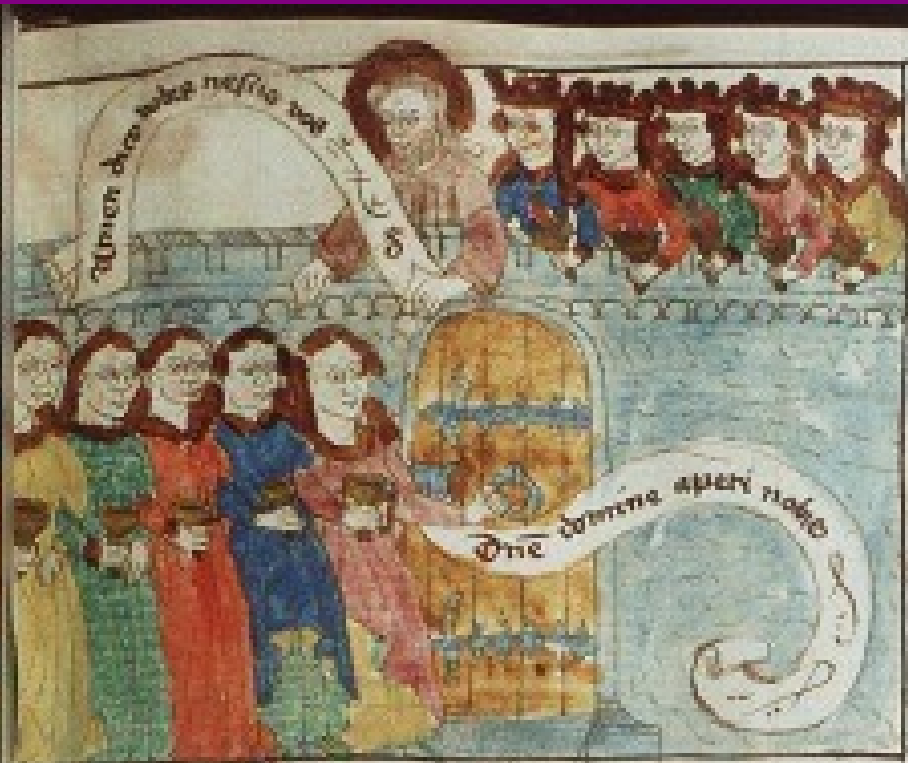 Amen dico vobis nescio vos
Dn̄e domine aperi nobis